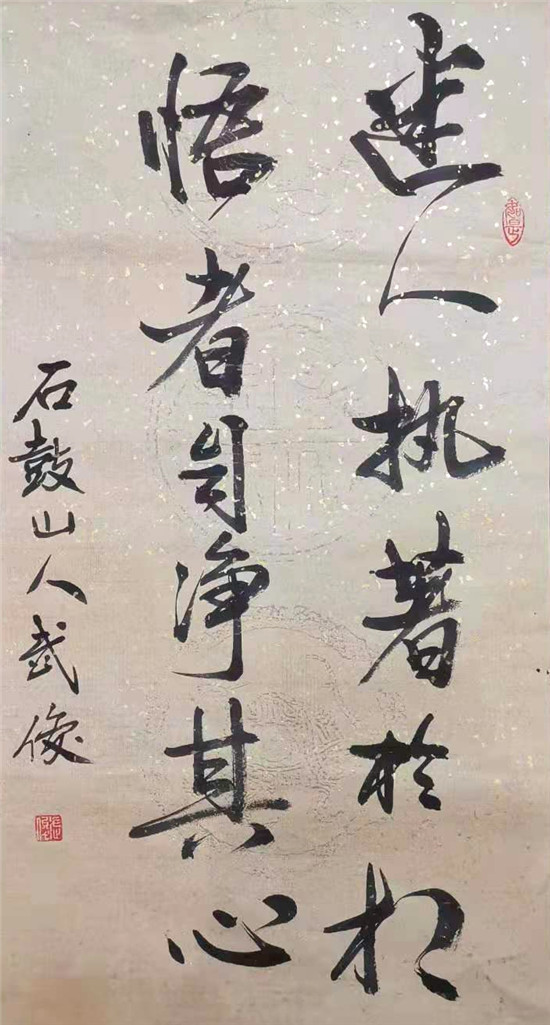 迷人执著於相
悟者自净其心
石鼓山人武俊